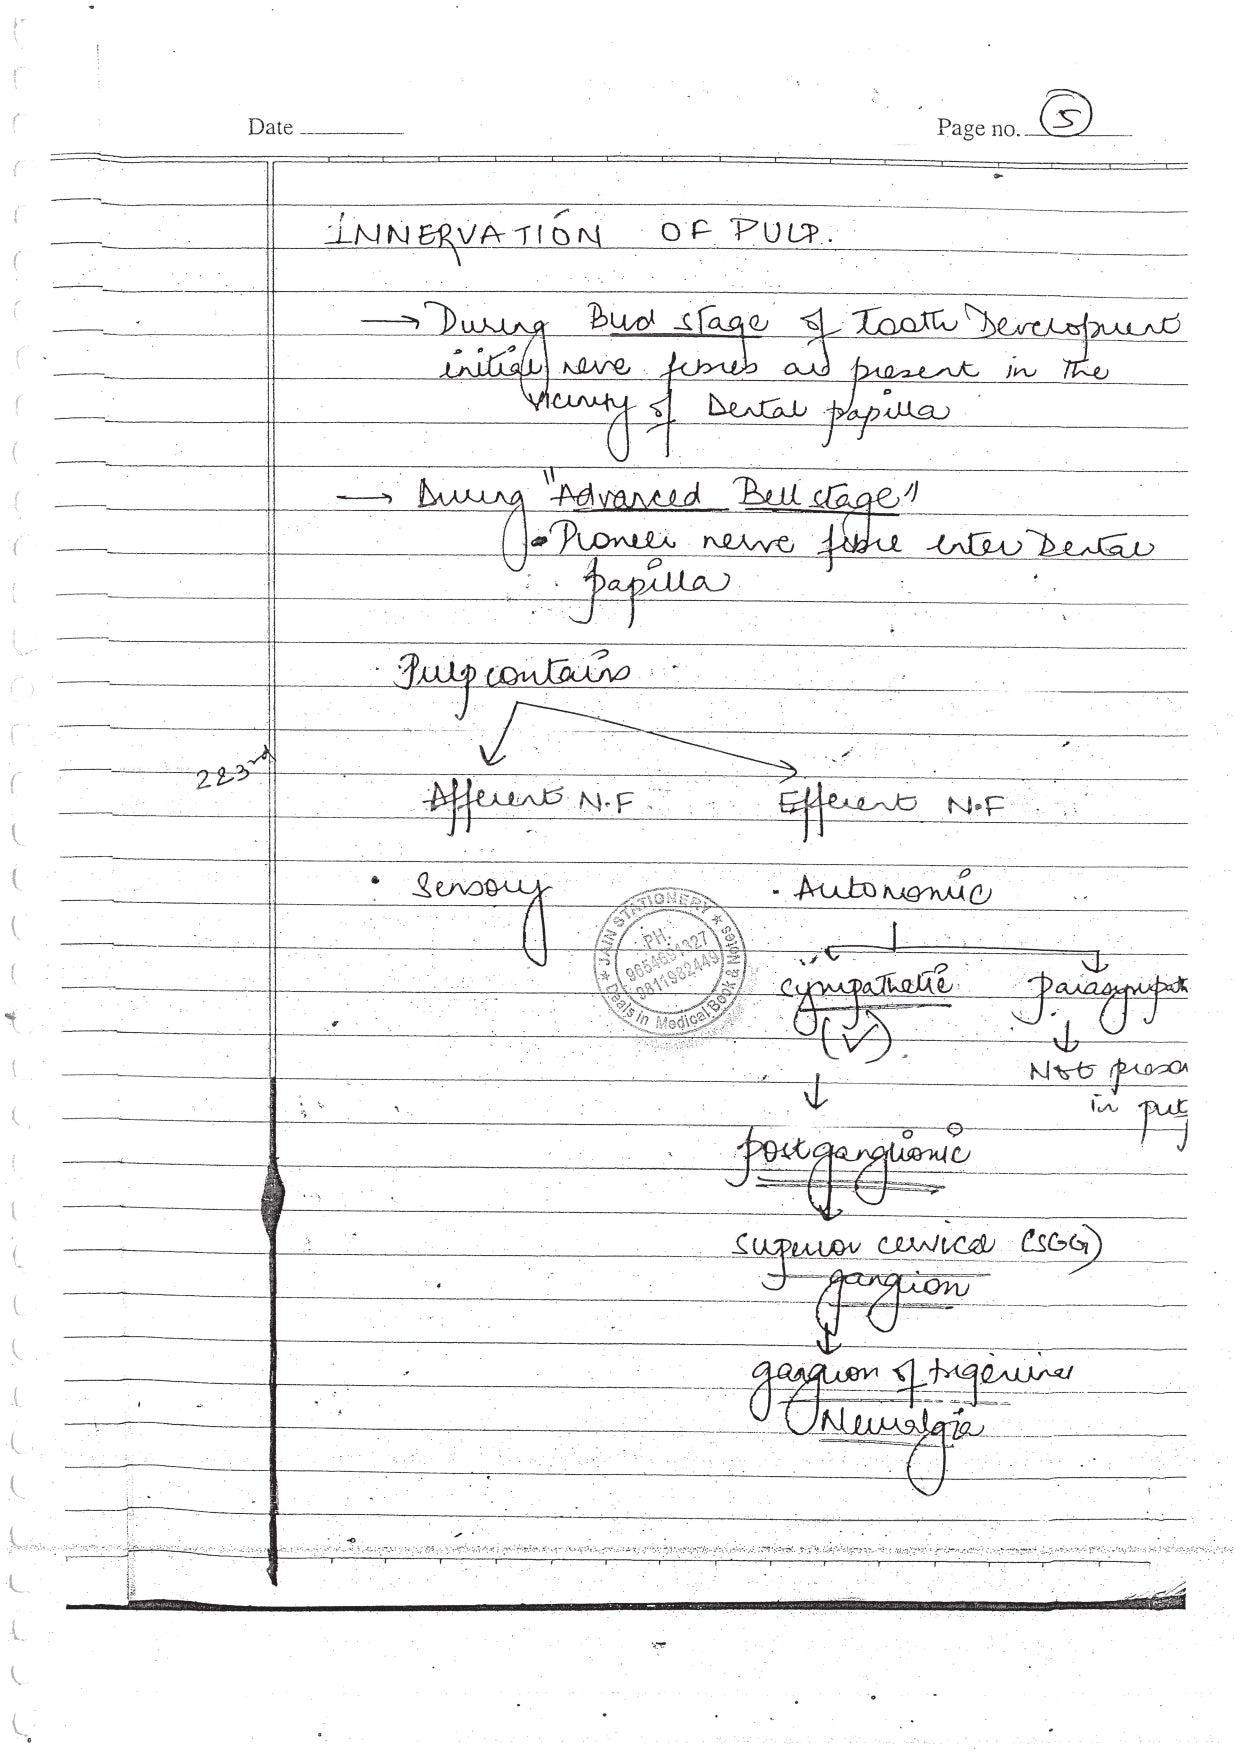 Date
Page no. 5
INNERVATION OF PULP.
→ During Bud stage of Tooth Development
initial nerve fibres are present in the
vicinity of Dental papilla
→ During "Advanced Bell stage"
• Pioneer nerve fibre enter Dental
papilla
Pulp contains
223rd
Afferent N.F Efferent N.F
• Sensory • Autonomic
★ JAIN STATIONERY ★
PH.
9811982449
Deals in Medical Book & Notes
sympathetic parasympath
(✓) ↓
Not presen
↓ in pulp
postganglionic
superior cervical (SGG)
gangion
↓
ganglion of trigeminal
Neuralgia